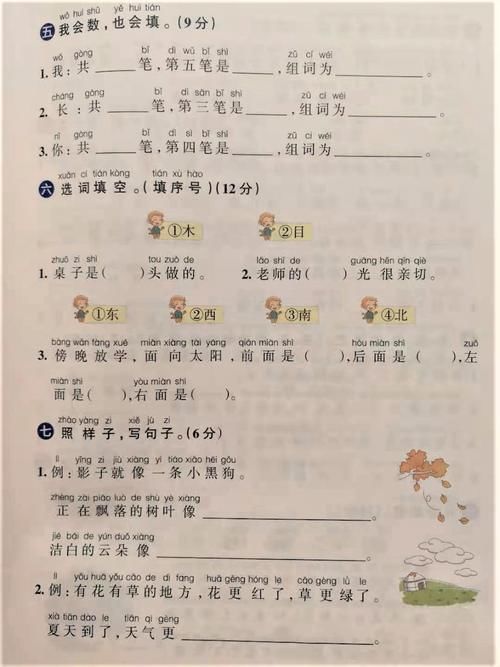 wǒ huì shǔ yě huì tián
五 我会数，也会填。(9分)
wǒ gòng bǐ dì wǔ bǐ shì zǔ cí wéi
1. 我：共______笔，第五笔是______，组词为________。
cháng gòng bǐ dì sān bǐ shì zǔ cí wéi
2. 长：共______笔，第三笔是______，组词为________。
nǐ gòng bǐ dì sì bǐ shì zǔ cí wéi
3. 你：共______笔，第四笔是______，组词为________。
xuǎn cí tián kòng tián xù hào
六 选词填空。(填序号)(12分)
①木 ②目
zhuō zi shì tou zuò de lǎo shī de guāng hěn qīn qiè
1. 桌子是( )头做的。 2. 老师的( )光很亲切。
①东 ②西 ③南 ④北
bàng wǎn fàng xué miàn xiàng tài yáng qián miàn shì hòu miàn shì zuǒ
3. 傍晚放学，面向太阳，前面是( )，后面是( )，左
miàn shì yòu miàn shì
面是( )，右面是( )。
zhào yàng zi xiě jù zi
七 照样子，写句子。(6分)
lì yǐng zi jiù xiàng yì tiáo xiǎo hēi gǒu
1. 例：影子就像一条小黑狗。
zhèng zài piāo luò de shù yè xiàng
正在飘落的树叶像____________________。
jié bái de yún duǒ xiàng
洁白的云朵像____________________。
lì yǒu huā yǒu cǎo de dì fang huā gèng hóng le cǎo gèng lǜ le
2. 例：有花有草的地方，花更红了，草更绿了。
xià tiān dào le tiān qì gèng
夏天到了，天气更____________________。